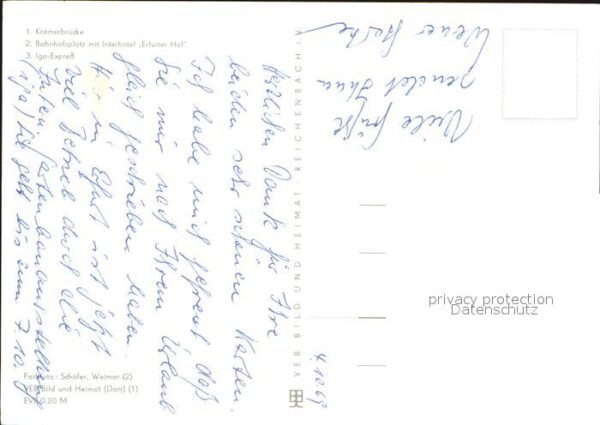 1. Krämerbrücke
2. Bahnhofsplatz mit Interhotel „Erfurter Hof"
3. Iga-Expreß
4.10.69
Herzlichen Dank für Ihre
beiden sehr schönen Karten.
Ich habe mich gefreut daß
Sie mir nach Ihrem Urlaub
gleich geschrieben haben.
Hier in Erfurt ist jetzt
viel Betrieb durch die
Gartenbauausstellung
iga, sie geht bis zum 7.10.
Viele Grüße
sendet Ihnen
Werner
VEB BILD UND HEIMAT REICHENBACH i. V.
Farbfoto: Schäfer, Weimar (2)
VEB Bild und Heimat (Darr) (1)
EVP 0.20 M
privacy protection
Datenschutz